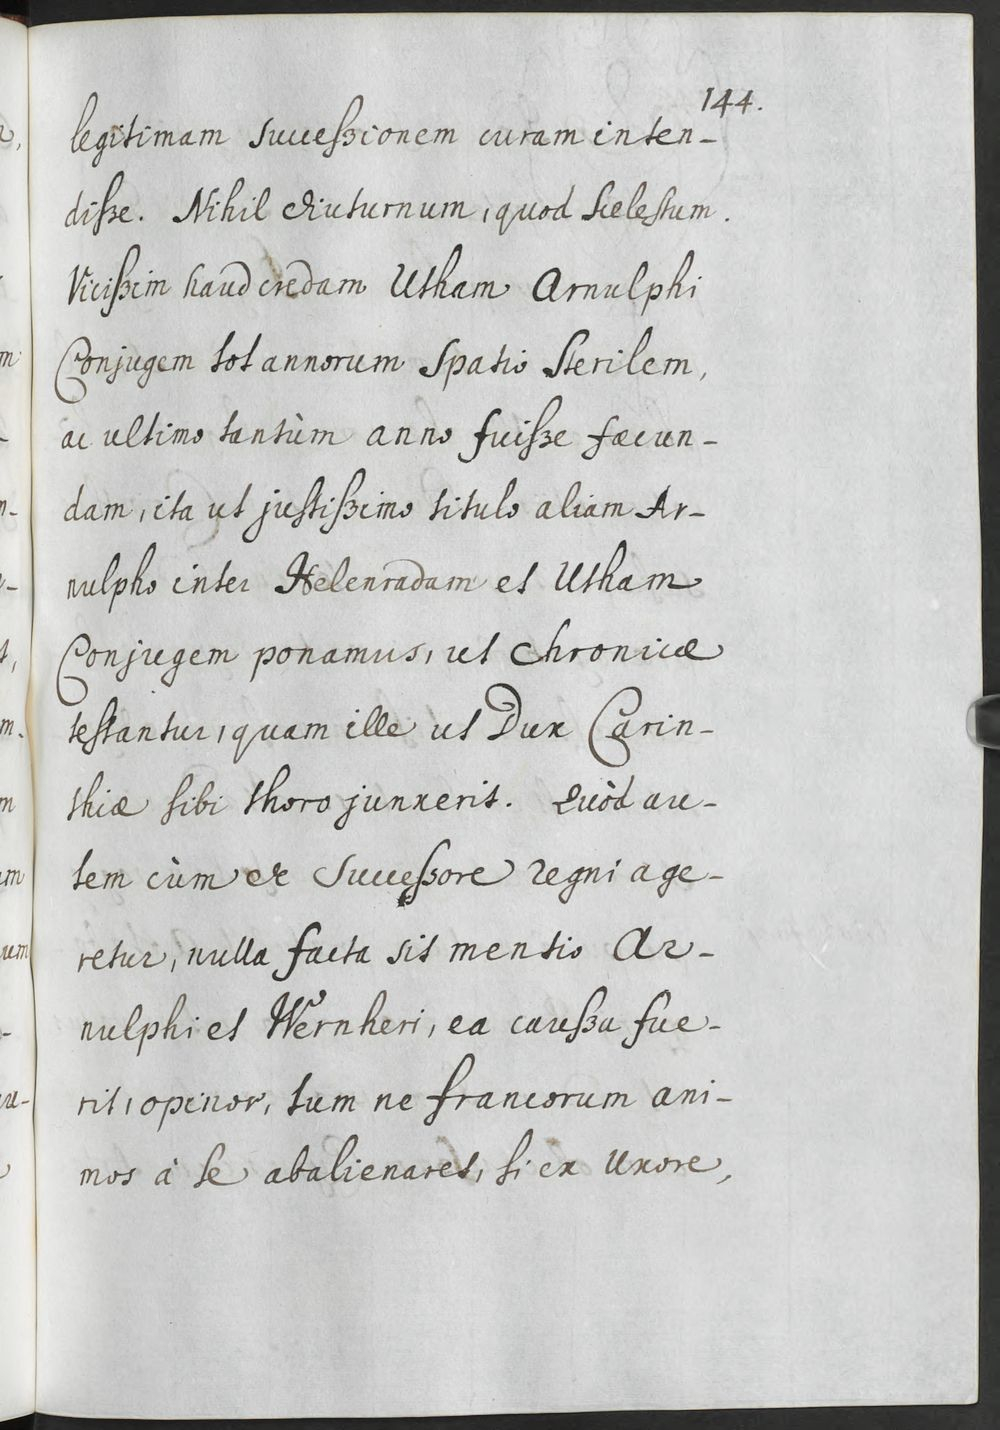 144.
legitimam successionem curam inten-
disse. Nihil diuturnum, quod scelestum.
Vicissim haud credam Utham Arnulphi
Conjugem tot annorum spatio sterilem,
ac ultimo tantùm anno fuisse fæcun-
dam, ita ut justissimo titulo aliam Ar-
nulpho inter Helenradam et Utham
Conjugem ponamus, ut Chronicæ
testantur, quam ille ut Dux Carin-
thiæ sibi thoro junxerit. Quòd au-
tem cùm de successore regni age-
retur, nulla facta sit mentio Ar-
nulphi et Wernheri, ea caussa fue-
rit, opinor, tum ne francorum ani-
mos à se abalienaret, si ex Uxore,